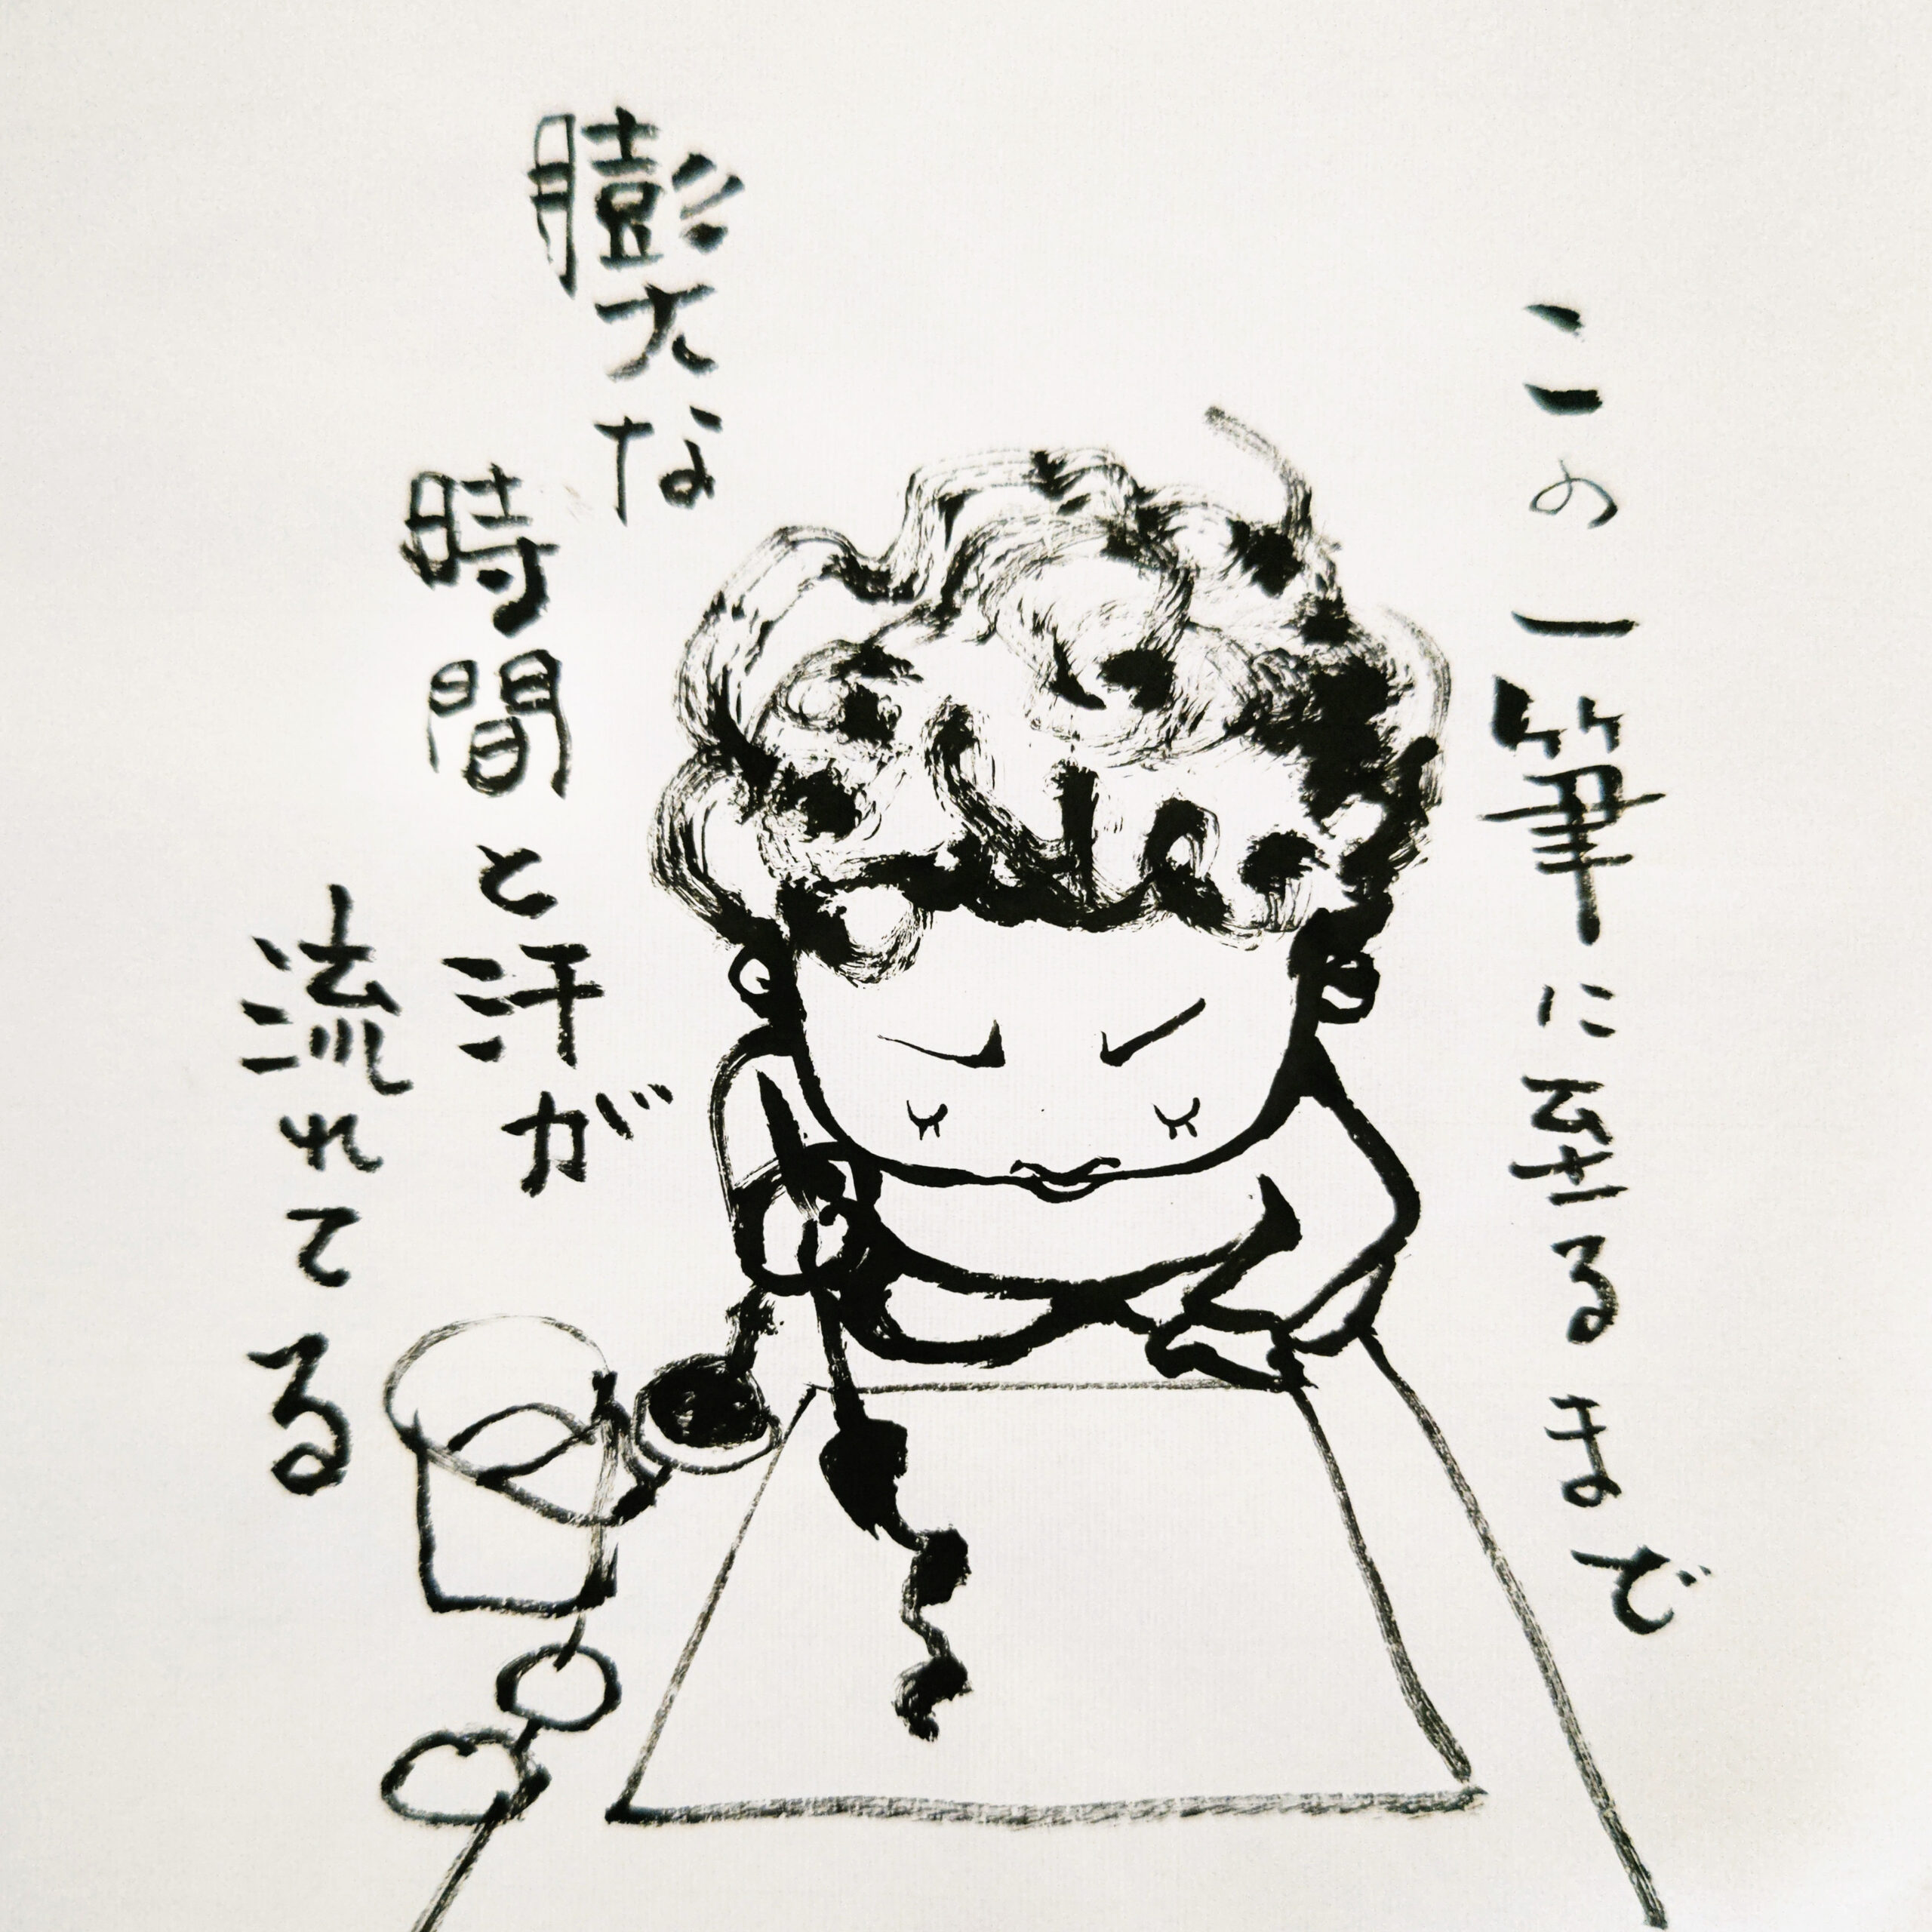 この一筆に至るまで
膨大な
時間と汗が
流れてる